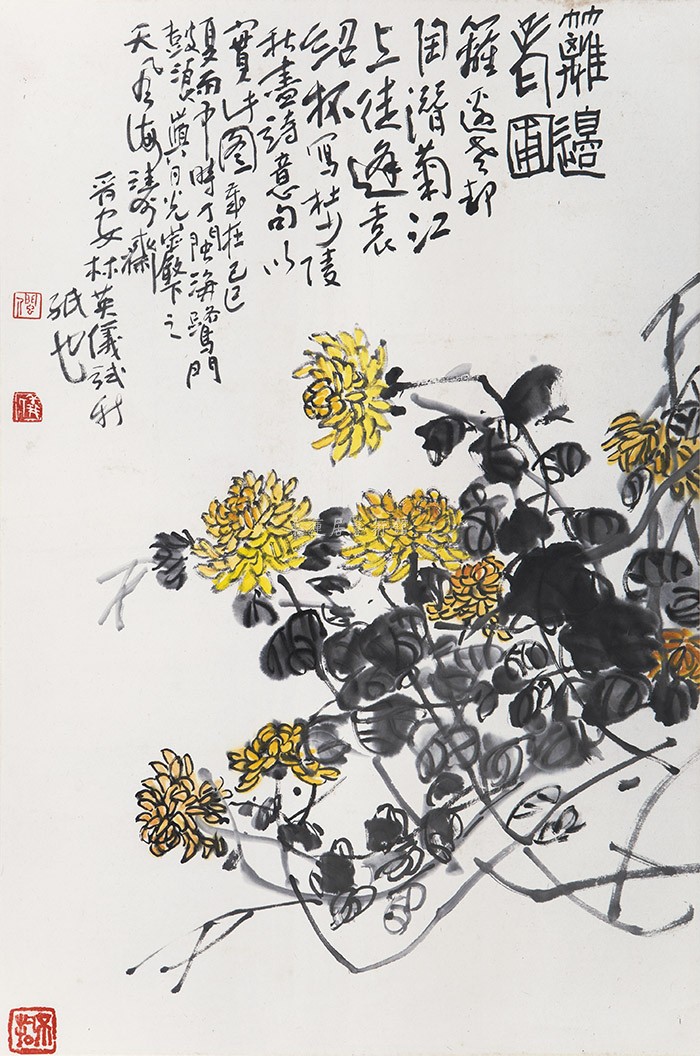 籬邊
籬邊老却
陶潛菊江
上徒逢袁
紹杯寫杜少陵
秋盡詩意句以
實此图歲在己巳
夏雨中時于閩海鷺門
鼓浪嶼日光岩殿下之
天風海濤齋
晉安林英儀試新
紙也